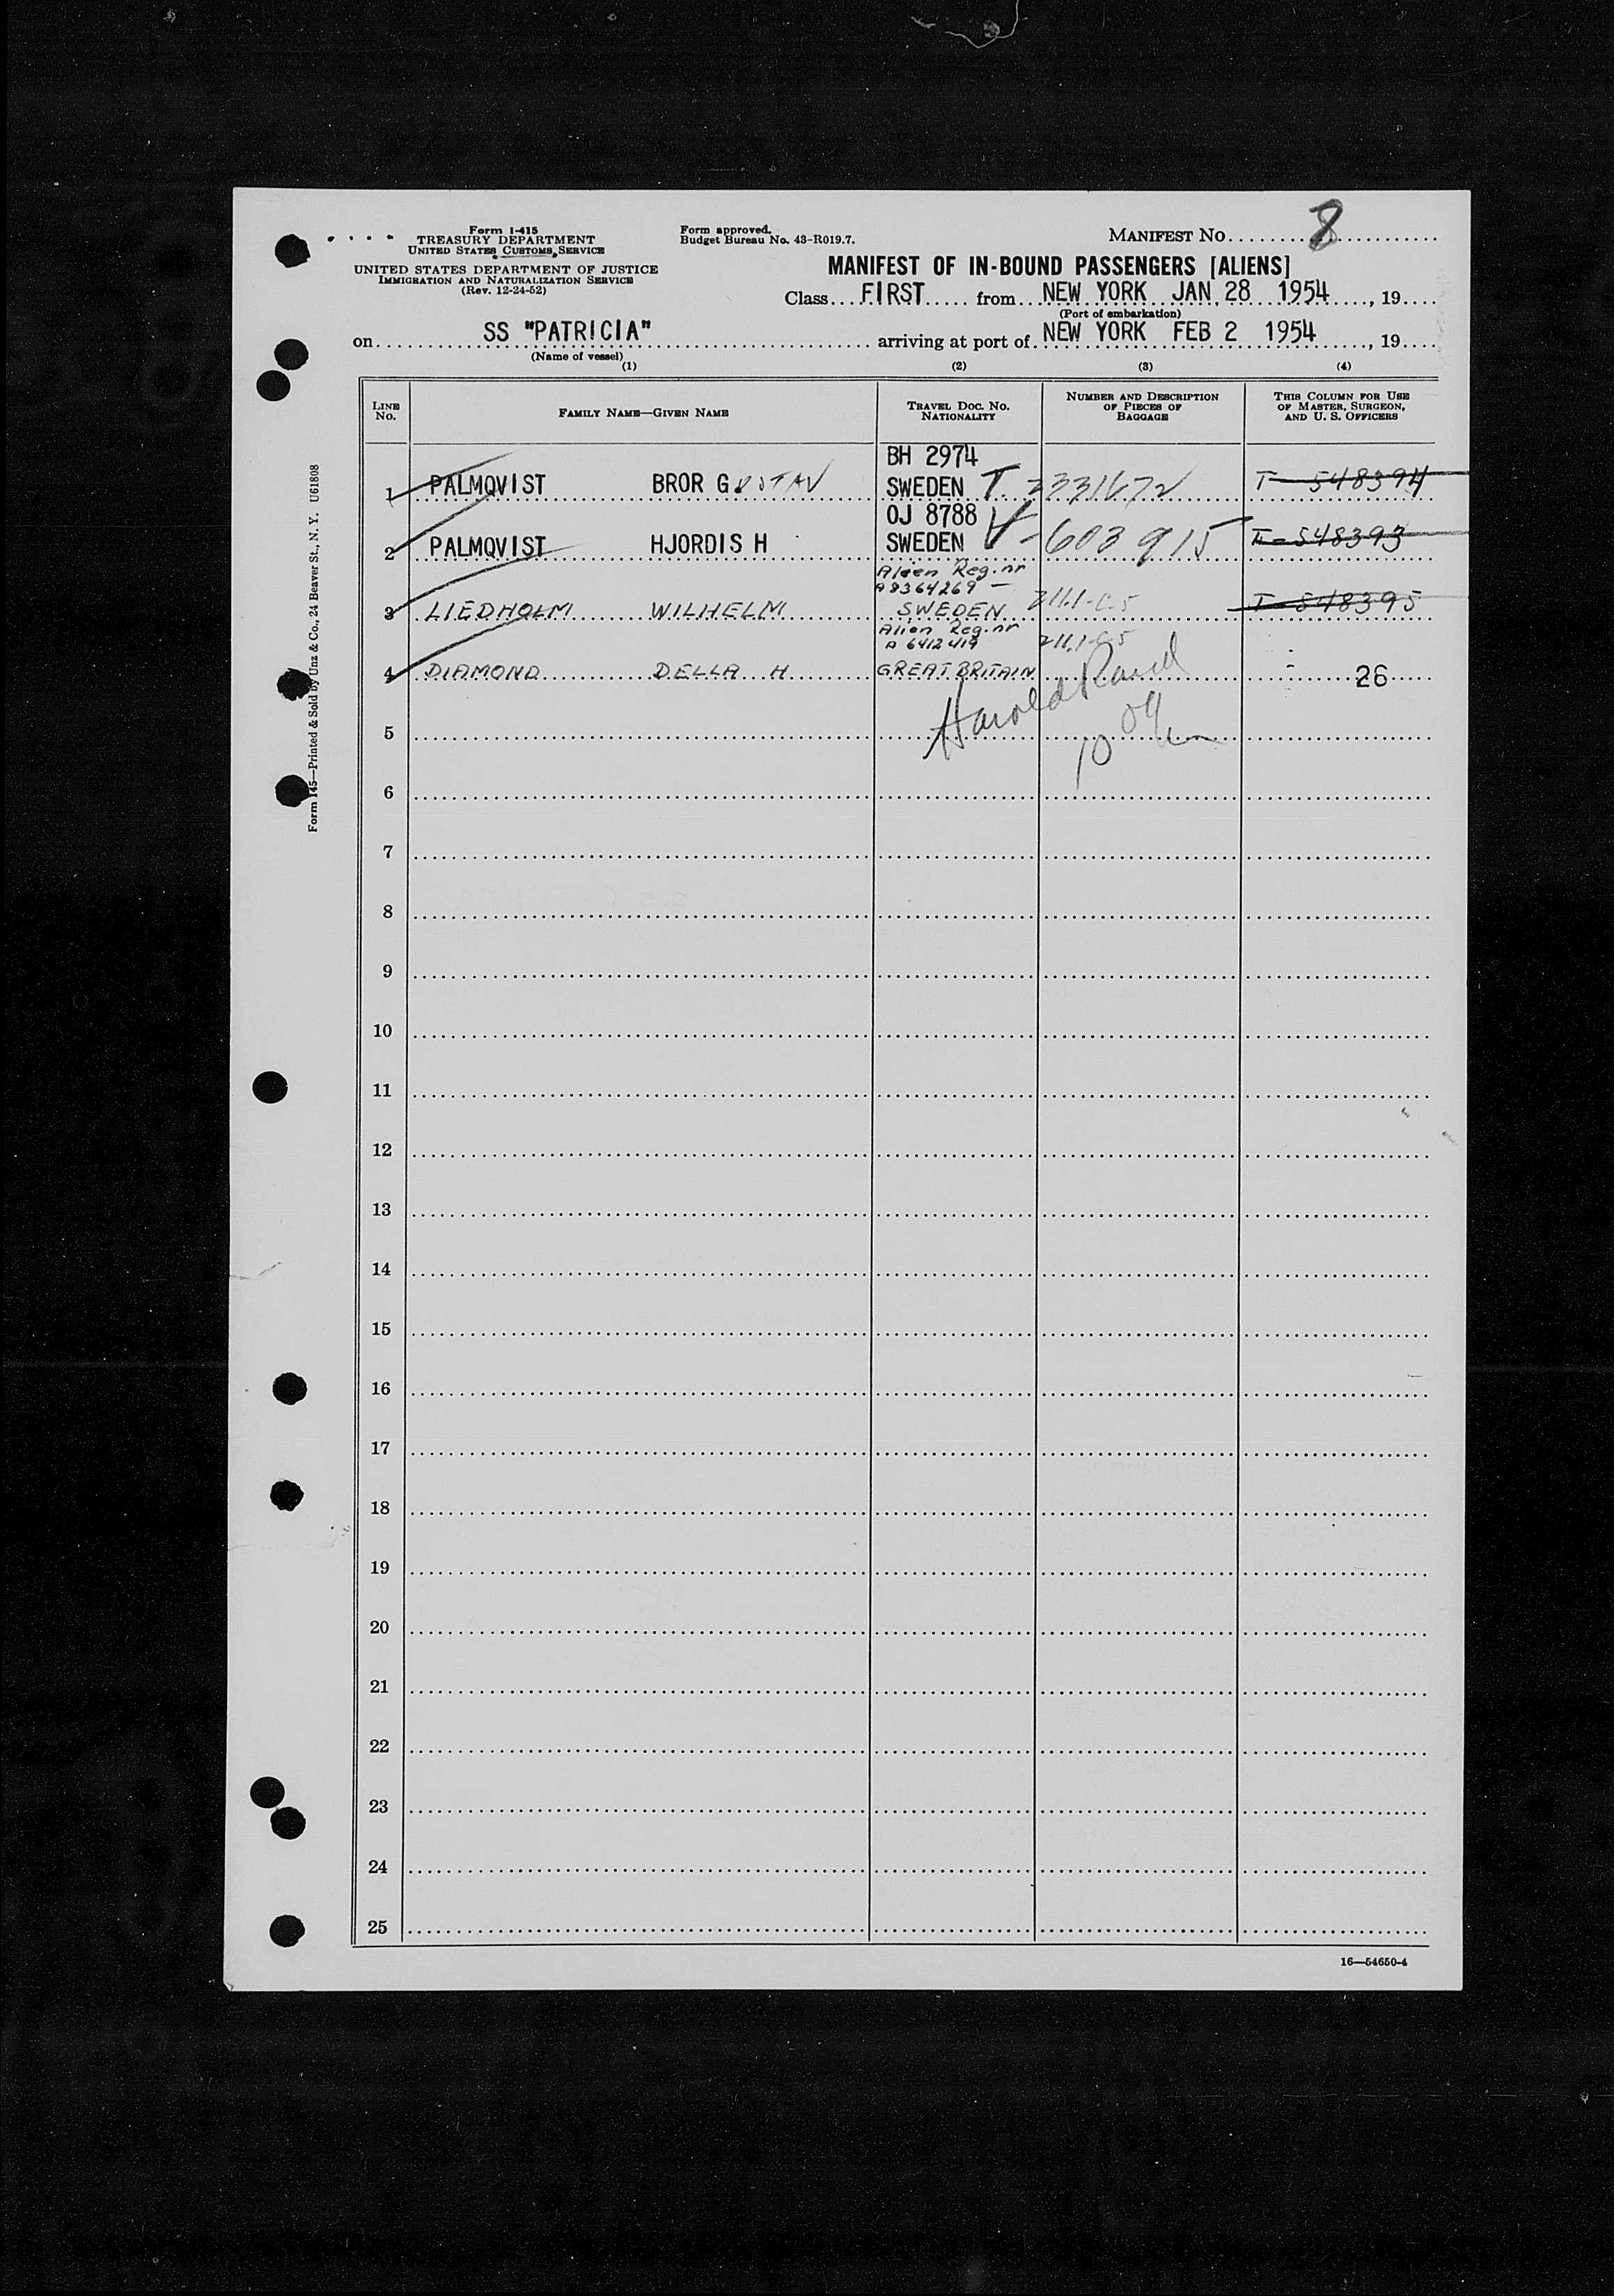 Form I-415
TREASURY DEPARTMENT
UNITED STATES CUSTOMS SERVICE
UNITED STATES DEPARTMENT OF JUSTICE
IMMIGRATION AND NATURALIZATION SERVICE
(Rev. 12-24-52)
Form approved.
Budget Bureau No. 43-R019.7.
MANIFEST NO. 8
MANIFEST OF IN-BOUND PASSENGERS [ALIENS]
Class FIRST from NEW YORK JAN 28 1954, 19
(Port of embarkation)
on SS "PATRICIA" arriving at port of NEW YORK FEB 2 1954, 19
(Name of vessel)
(1) (2) (3) (4)
LINE NO.
FAMILY NAME—GIVEN NAME
TRAVEL DOC. NO. NATIONALITY
NUMBER AND DESCRIPTION OF PIECES OF BAGGAGE
THIS COLUMN FOR USE OF MASTER, SURGEON, AND U. S. OFFICERS
BH 2974
1 PALMQVIST BROR GUSTAV SWEDEN T 2331672 T-548394
OJ 8788
2 PALMQVIST HJORDIS H SWEDEN V-603915 T-548393
Alien Reg. nr
A8364269 —
3 LIEDHOLM WILHELM SWEDEN 211.1-C.5 T-548395
Alien Reg. nr
A 6412419 211.1-C5
4 DIAMOND DELLA H GREAT BRITAIN 26
Harold
5
10
6
7
8
9
10
11
12
13
14
15
16
17
18
19
20
21
22
23
24
25
16—54650-4
Form 145—Printed & Sold by Unz & Co., 24 Beaver St., N. Y. U61808